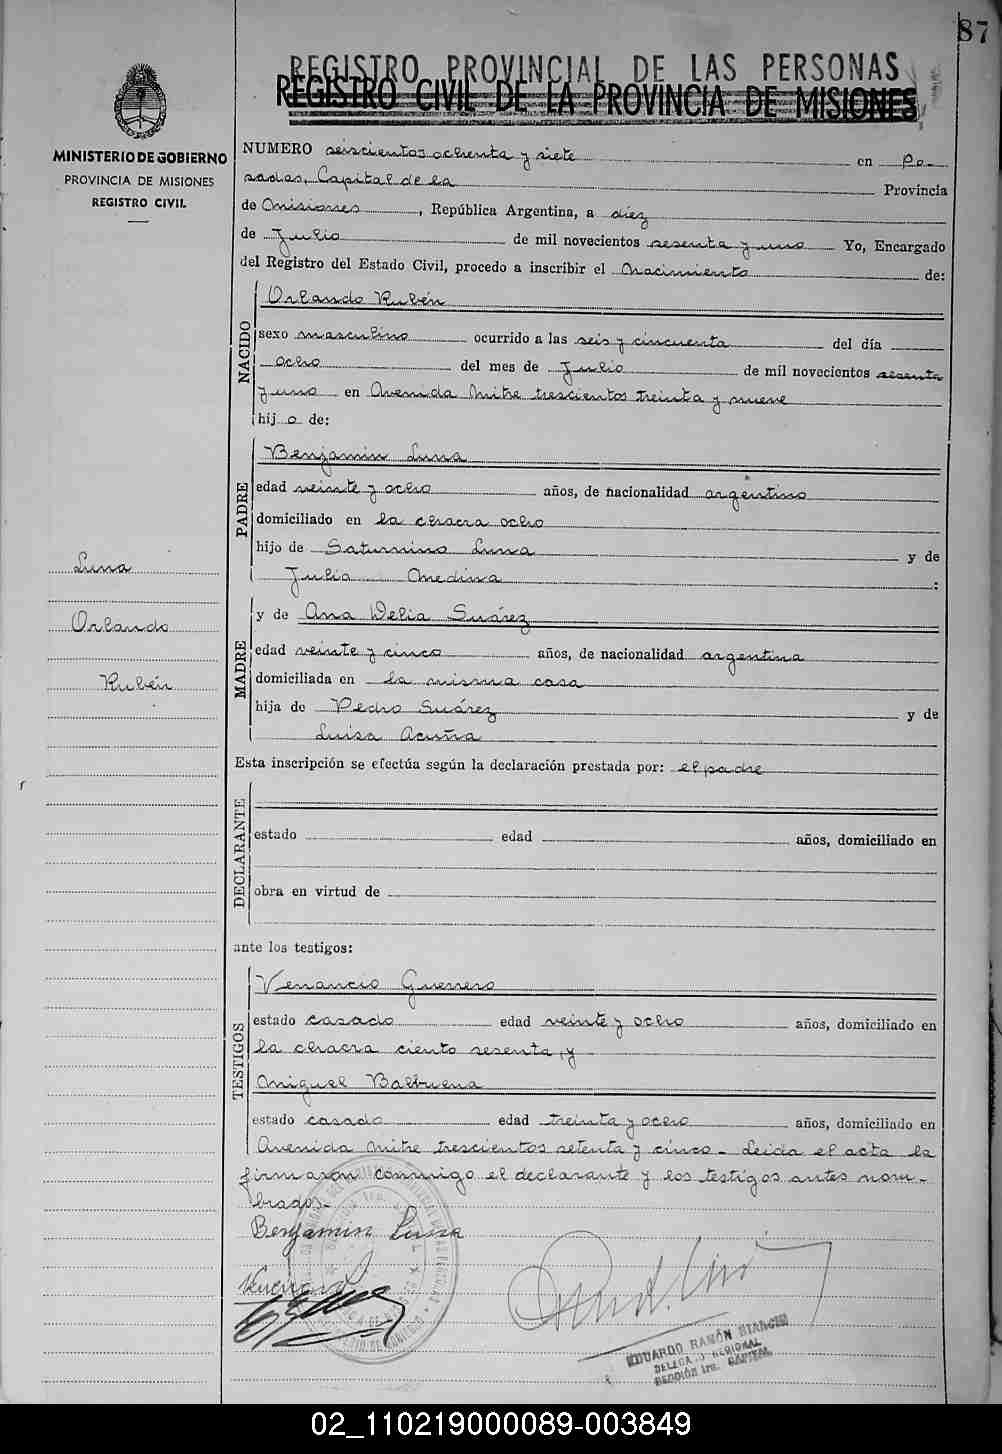 87
REGISTRO PROVINCIAL DE LAS PERSONAS
REGISTRO CIVIL DE LA PROVINCIA DE MISIONES
MINISTERIO DE GOBIERNO
PROVINCIA DE MISIONES
REGISTRO CIVIL
NUMERO seiscientos ochenta y siete en Po-
sadas, Capital de la Provincia
de Misiones, República Argentina, a diez
de Julio de mil novecientos sesenta y uno Yo, Encargado
del Registro del Estado Civil, procedo a inscribir el Nacimiento de:
NACIDO
Orlando Rubén
sexo masculino ocurrido a las seis y cincuenta del día
ocho del mes de Julio de mil novecientos sesenta
y uno en Avenida Mitre trescientos treinta y nueve
hijo de:
PADRE
Benjamin Luna
edad veinte y ocho años, de nacionalidad argentino
domiciliado en la chacra ocho
hijo de Saturnino Luna y de
Julia Medina :
Luna
Orlando
Rubén
MADRE
y de Ana Delia Suárez
edad veinte y cinco años, de nacionalidad argentina
domiciliada en la misma casa
hija de Pedro Suárez y de
Luisa Acuña
Esta inscripción se efectúa según la declaración prestada por: el padre
DECLARANTE
estado edad años, domiciliado en
obra en virtud de
ante los testigos:
TESTIGOS
Venancio Guerrero
estado casado edad veinte y ocho años, domiciliado en
la chacra ciento sesenta, y
Miguel Balbuena
estado casado edad treinta y ocho años, domiciliado en
Avenida Mitre trescientos setenta y cinco - Leida el acta la
firmaron conmigo el declarante y los testigos antes nom-
brados.-
Benjamin Luna
EDUARDO RAMÓN BIANCHI
DELEGADO REGIONAL
SECCIÓN 1ra. CAPITAL
02_110219000089-003849